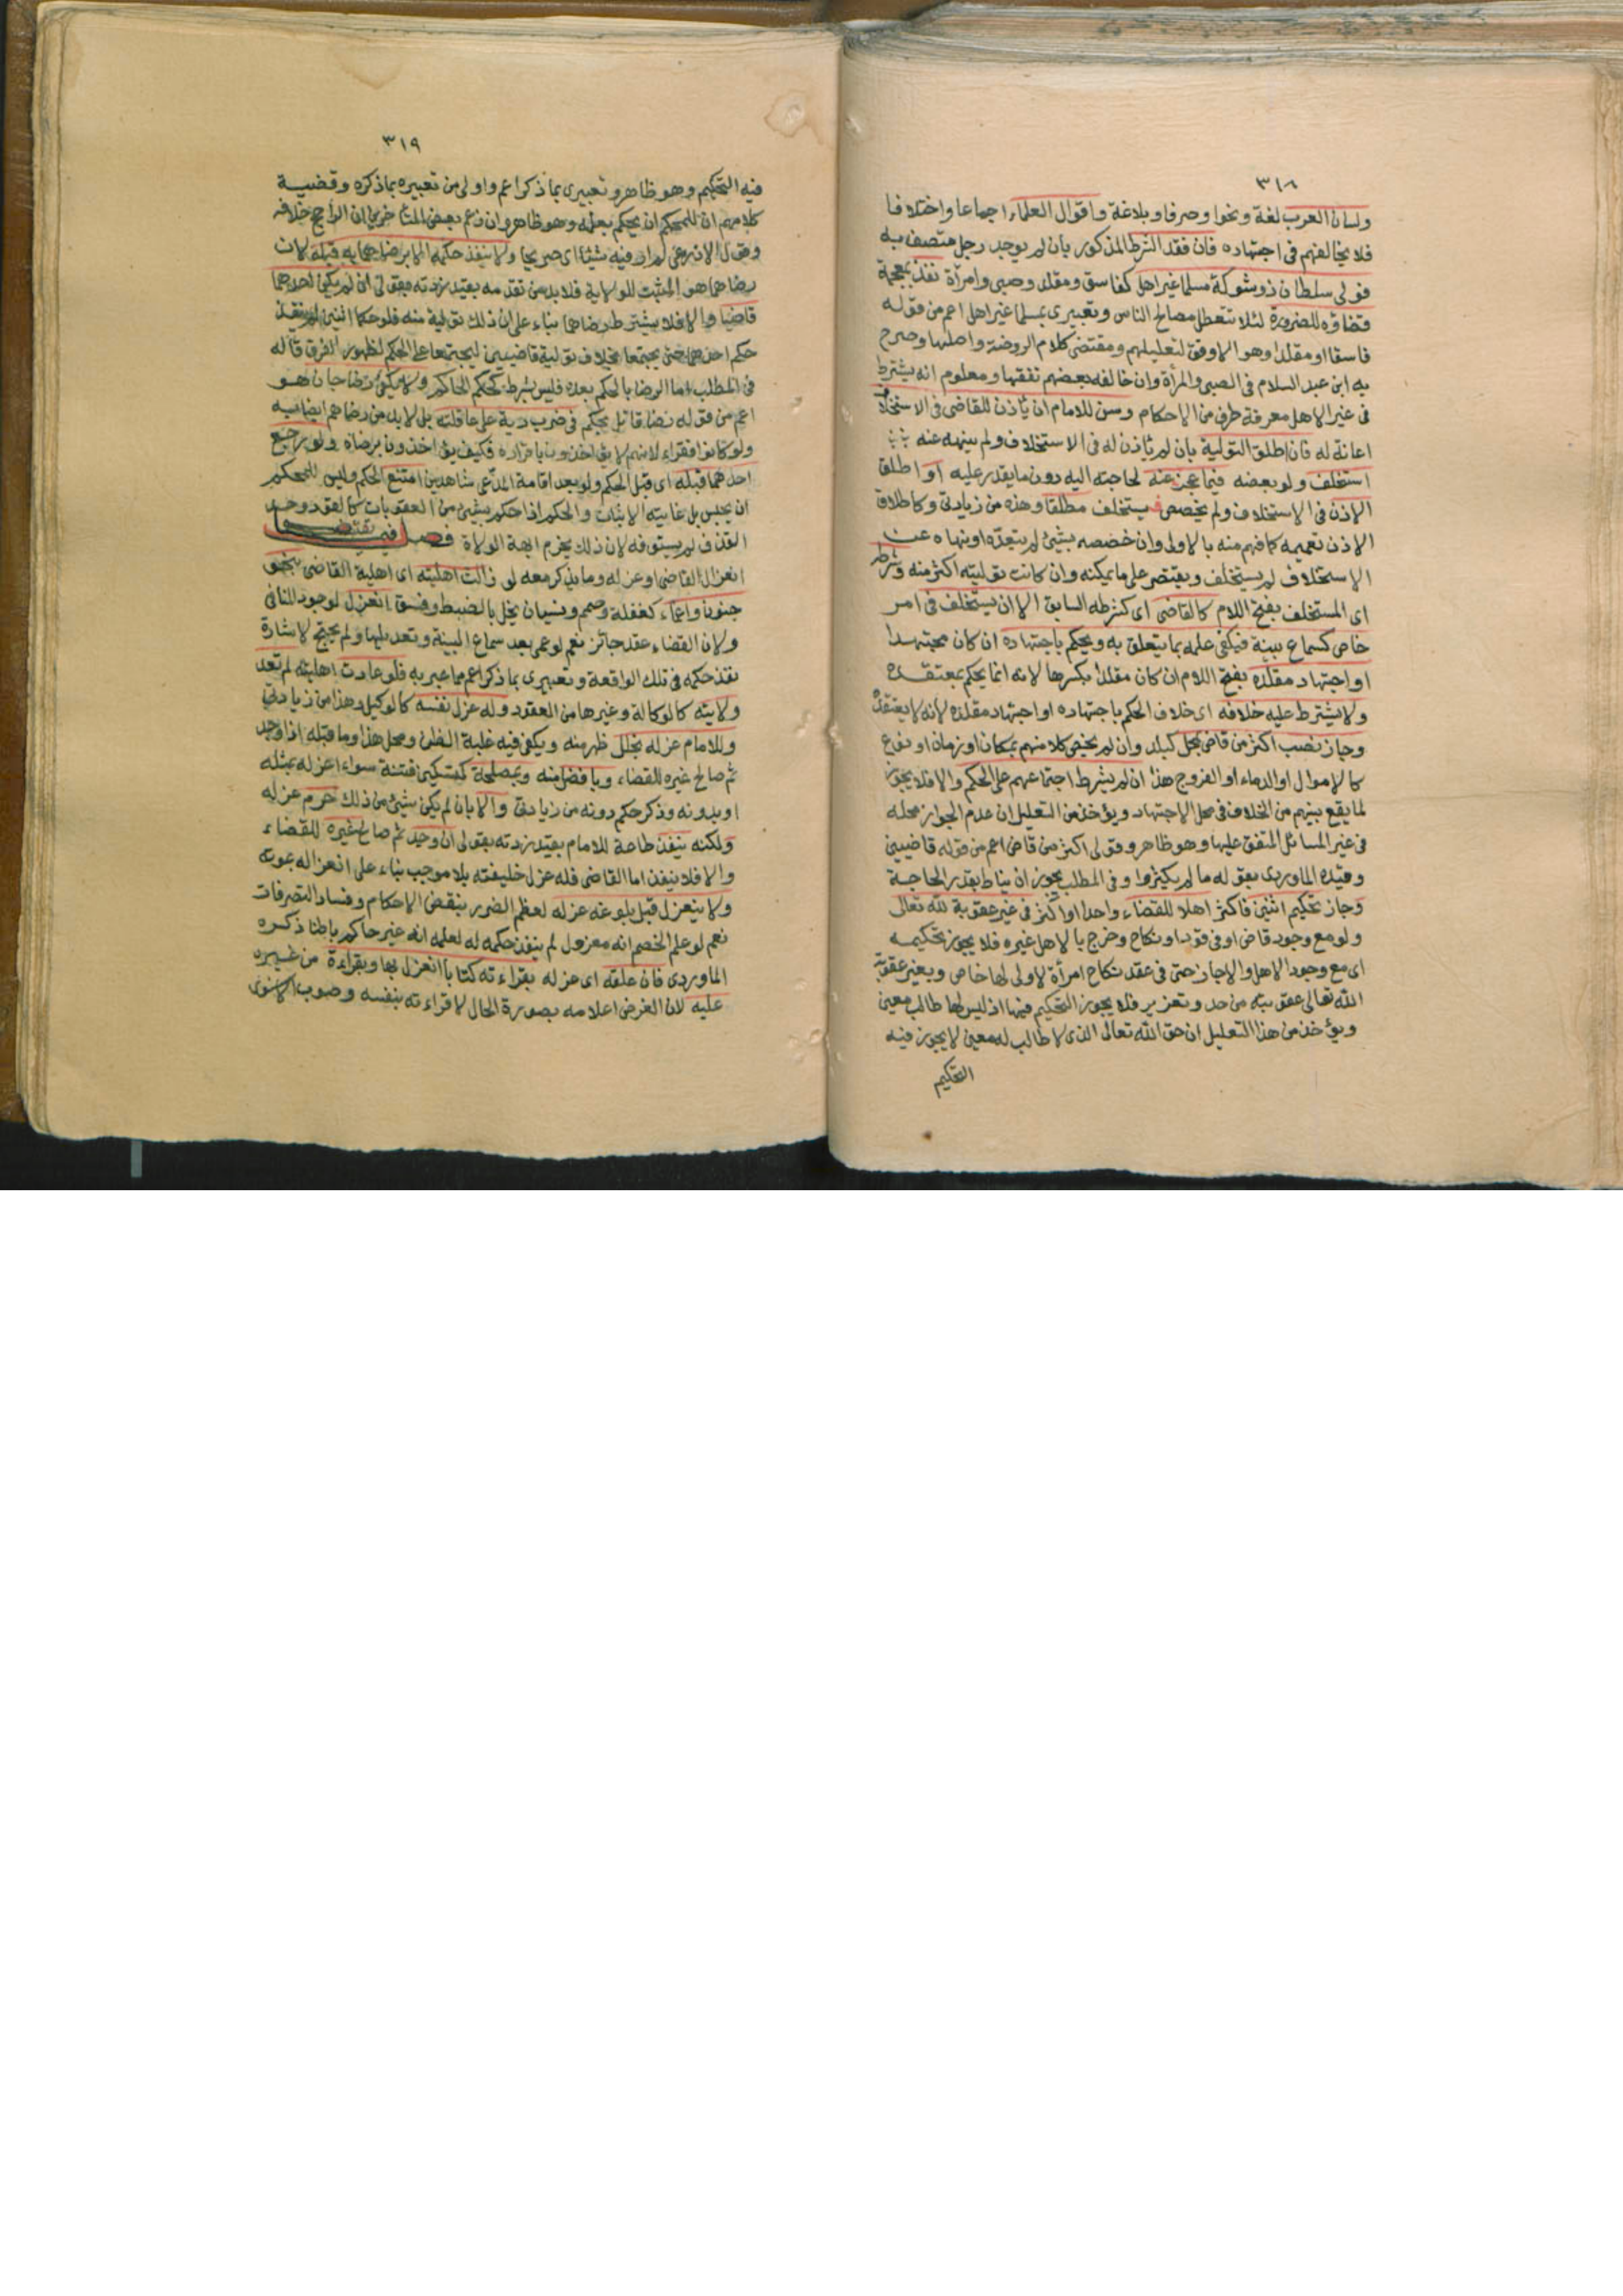 ٣١٨
ولسان العرب لغة ونحوا وصرفا وبلاغة واقوال العلماء اجماعا واختلافا
فلا يخالفهم فى اجتهاده فان فقد الشرط المذكور بان لم يوجد رجل متصف به
فولى سلطان ذو شوكة مسلما غير اهل كفاسق ومقلد وصبى وامرأة نفذ
قضاؤه للضرورة لئلا تتعطل مصالح الناس وتعبيرى بمسلما غير اهل اعم من قوله
فاسقا او مقلدا وهو الاوفق لتعليلهم ومقتضى كلام الروضة واصلها وصرح
به ابن عبد السلام فى الصبى والمرأة وان خالفه بعضهم تفقها ومعلوم انه يشترط
فى غير الاهل معرفة طرف من الاحكام وسن للامام ان يأذن للقاضى فى الاستخلاف
اعانة له فان اطلق التولية بان لم يأذن له فى الاستخلاف ولم ينهه عنه
استخلف ولو بعضه فيما عجز عنه لحاجته اليه دون ما يقدر عليه او اطلق
الاذن فى الاستخلاف ولم يخصص فيستخلف مطلقا وهذه من زيادتى وكاطلاق
الاذن تعميمه كما فهم منه بالاولى وان خصصه بشئ لم يتعده او نهاه عن
الاستخلاف لم يستخلف ويقتصر على ما يمكنه وان كانت توليته اكثر منه وشرطه
اى المستخلف بفتح اللام كالقاضى اى كشرطه السابق الا ان يستخلف فى امر
خاص كسماع بينة فيكفى علمه بما يتعلق به ويحكم باجتهاده ان كان مجتهدا
او اجتهاد مقلده بفتح اللام ان كان مقلدا بكسرها لانه انما يحكم بمعتقده
ولا يشترط عليه خلافه اى خلاف الحكم باجتهاده او اجتهاد مقلده لانه لا يعتقده
وجاز نصب اكثر من قاض بمحل كبلد وان لم يخص كلا منهم بمكان او زمان او نوع
كالاموال او الدماء او الفروج هذا ان لم يشرط اجتماعهم على الحكم والا فلا يجوز
لما يقع بينهم من الخلاف فى محل الاجتهاد ويؤخذ من التعليل ان عدم الجواز محله
فى غير المسائل المتفق عليها وهو ظاهر وقولى اكثر من قاض اعم من قوله قاضيين
وقيده الماوردى بقوله ما لم يكثروا وفى المطلب يجوز ان يناط بقدر الحاجة
وجاز تحكيم اثنين فاكثر اهلا للقضاء واحدا او اكثر فى غير عقوبة لله تعالى
ولو مع وجود قاض او فى قود او نكاح وخرج بالاهل غيره فلا يجوز تحكيمه
اى مع وجود الاهل والا جاز حتى فى عقد نكاح امرأة لا ولى لها خاص وبغير عقوبة
الله تعالى عقوبته من حد وتعزير فلا يجوز التحكيم فيها اذ ليس لها طالب معين
ويؤخذ من هذا التعليل ان حق الله تعالى الذى لا طالب له معين لا يجوز فيه
التحكيم
٣١٩
فيه التحكيم وهو ظاهر وتعبيرى بما ذكر اعم واولى من تعبيره بما ذكره وقضية
كلامهم ان للمحكم ان يحكم بعلمه وهو ظاهر وان زعم بعض المتأخرين ان الراجح خلافه
وقول الاذرعى لم ار فيه شيئا اى صريحا ولا ينفذ حكمه الا برضاهما به قبله لان
رضاهما هو المثبت للولاية فلا بد من تقدمه بقيد زدته بقولى ان لم يكن احدهما
قاضيا والا فلا يشترط رضاهما بناء على ان ذلك تولية منه فلو حكما اثنين لم ينفذ
حكم احدهما حتى يجتمعا بخلاف تولية قاضيين ليجتمعا على الحكم لظهور الفرق قاله
فى المطلب اما الرضا بالحكم بعده فليس بشرط كحكم الحاكم ولا يكفى رضا جان هو
اعم من قوله رضا قاتل بحكم فى ضرب دية على عاقلته بل لا بد من رضاهم ايضا به
ولو كانوا فقراء لانهم لا يؤاخذون باقراره فكيف يؤاخذون برضاه ولو رجع
احدهما قبله اى قبل الحكم ولو بعد اقامة المدعى شاهدين امتنع الحكم وليس للمحكم
ان يحبس بل غايته الاثبات والحكم اذا حكم بشئ من العقوبات كالقود وحد
القذف لم يستوفه لان ذلك يخرم ابهة الولاة فصل فيما يقتضى
انعزال القاضى او عزله وما يذكر معه لو زالت اهليته اى اهلية القاضى بنحو
جنون واغماء كغفلة وصمم ونسيان يخل بالضبط وفسق انعزل لوجود المنافى
ولان القضاء عقد جائز نعم لو عمى بعد سماع البينة وتعديلها ولم يحتج لاشارة
نفذ حكمه فى تلك الواقعة وتعبيرى بما ذكر اعم مما عبر به فلو عادت اهليته لم تعد
ولايته كالوكالة وغيرها من العقود وله عزل نفسه كالوكيل وهذا من زيادتى
وللامام عزله بخلل ظهر منه ويكفى فيه غلبة الظن ومحل هذا وما قبله اذا وجد
ثم صالح غيره للقضاء وبافضل منه وبمصلحة كتسكين فتنة سواء اعزله بمثله
او بدونه وذكر حكم دونه من زيادتى والا بان لم يكن شئ من ذلك حرم عزله
ولكنه ينفذ طاعة للامام بقيد زدته بقولى ان وجد ثم صالح غيره للقضاء
والا فلا ينفذ اما القاضى فله عزل خليفته بلا موجب بناء على انعزاله بموته
ولا ينعزل قبل بلوغه عزله لعظم الضرر بنقض الاحكام وفساد التصرفات
نعم لو علم الخصم انه معزول لم ينفذ حكمه له لعلمه انه غير حاكم باطنا ذكره
الماوردى فان علقه اى عزله بقراءته كتابا انعزل بها وبقراءة من غيره
عليه لان الغرض اعلامه بصورة الحال لا قراءته بنفسه وصوب الاسنوى